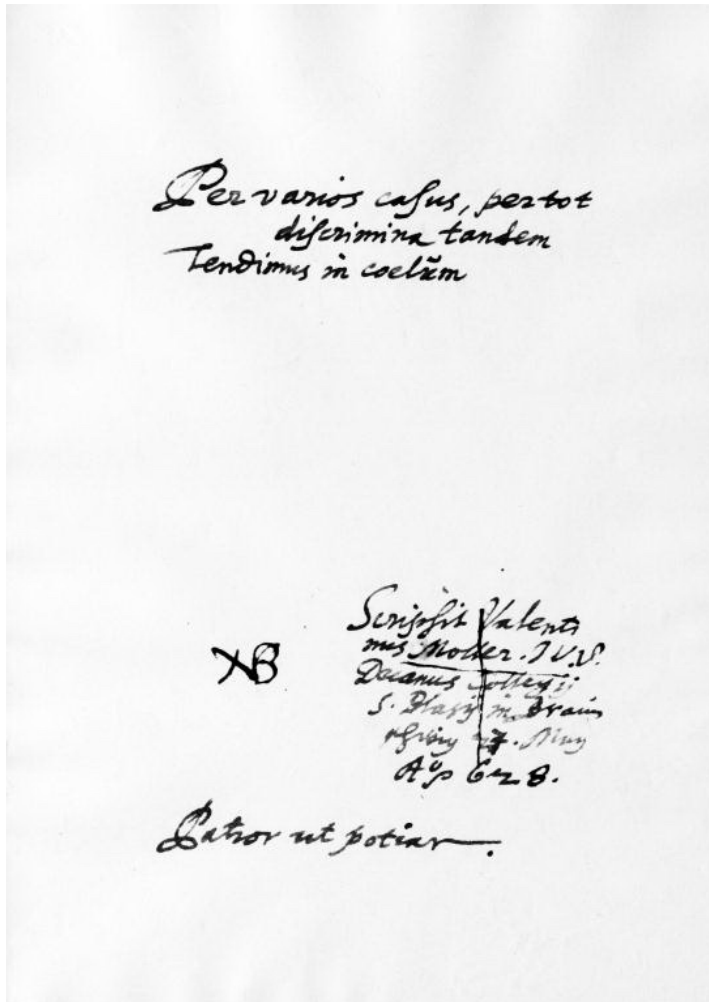 Per varios casus, per tot
discrimina tandem
Tendimus in coelum
Scripsit Valenti
nus Moller. I.V.D.
Decanus Collegij
S. Blasij in Braun
NB
May
Aº 628.
Patior ut potiar